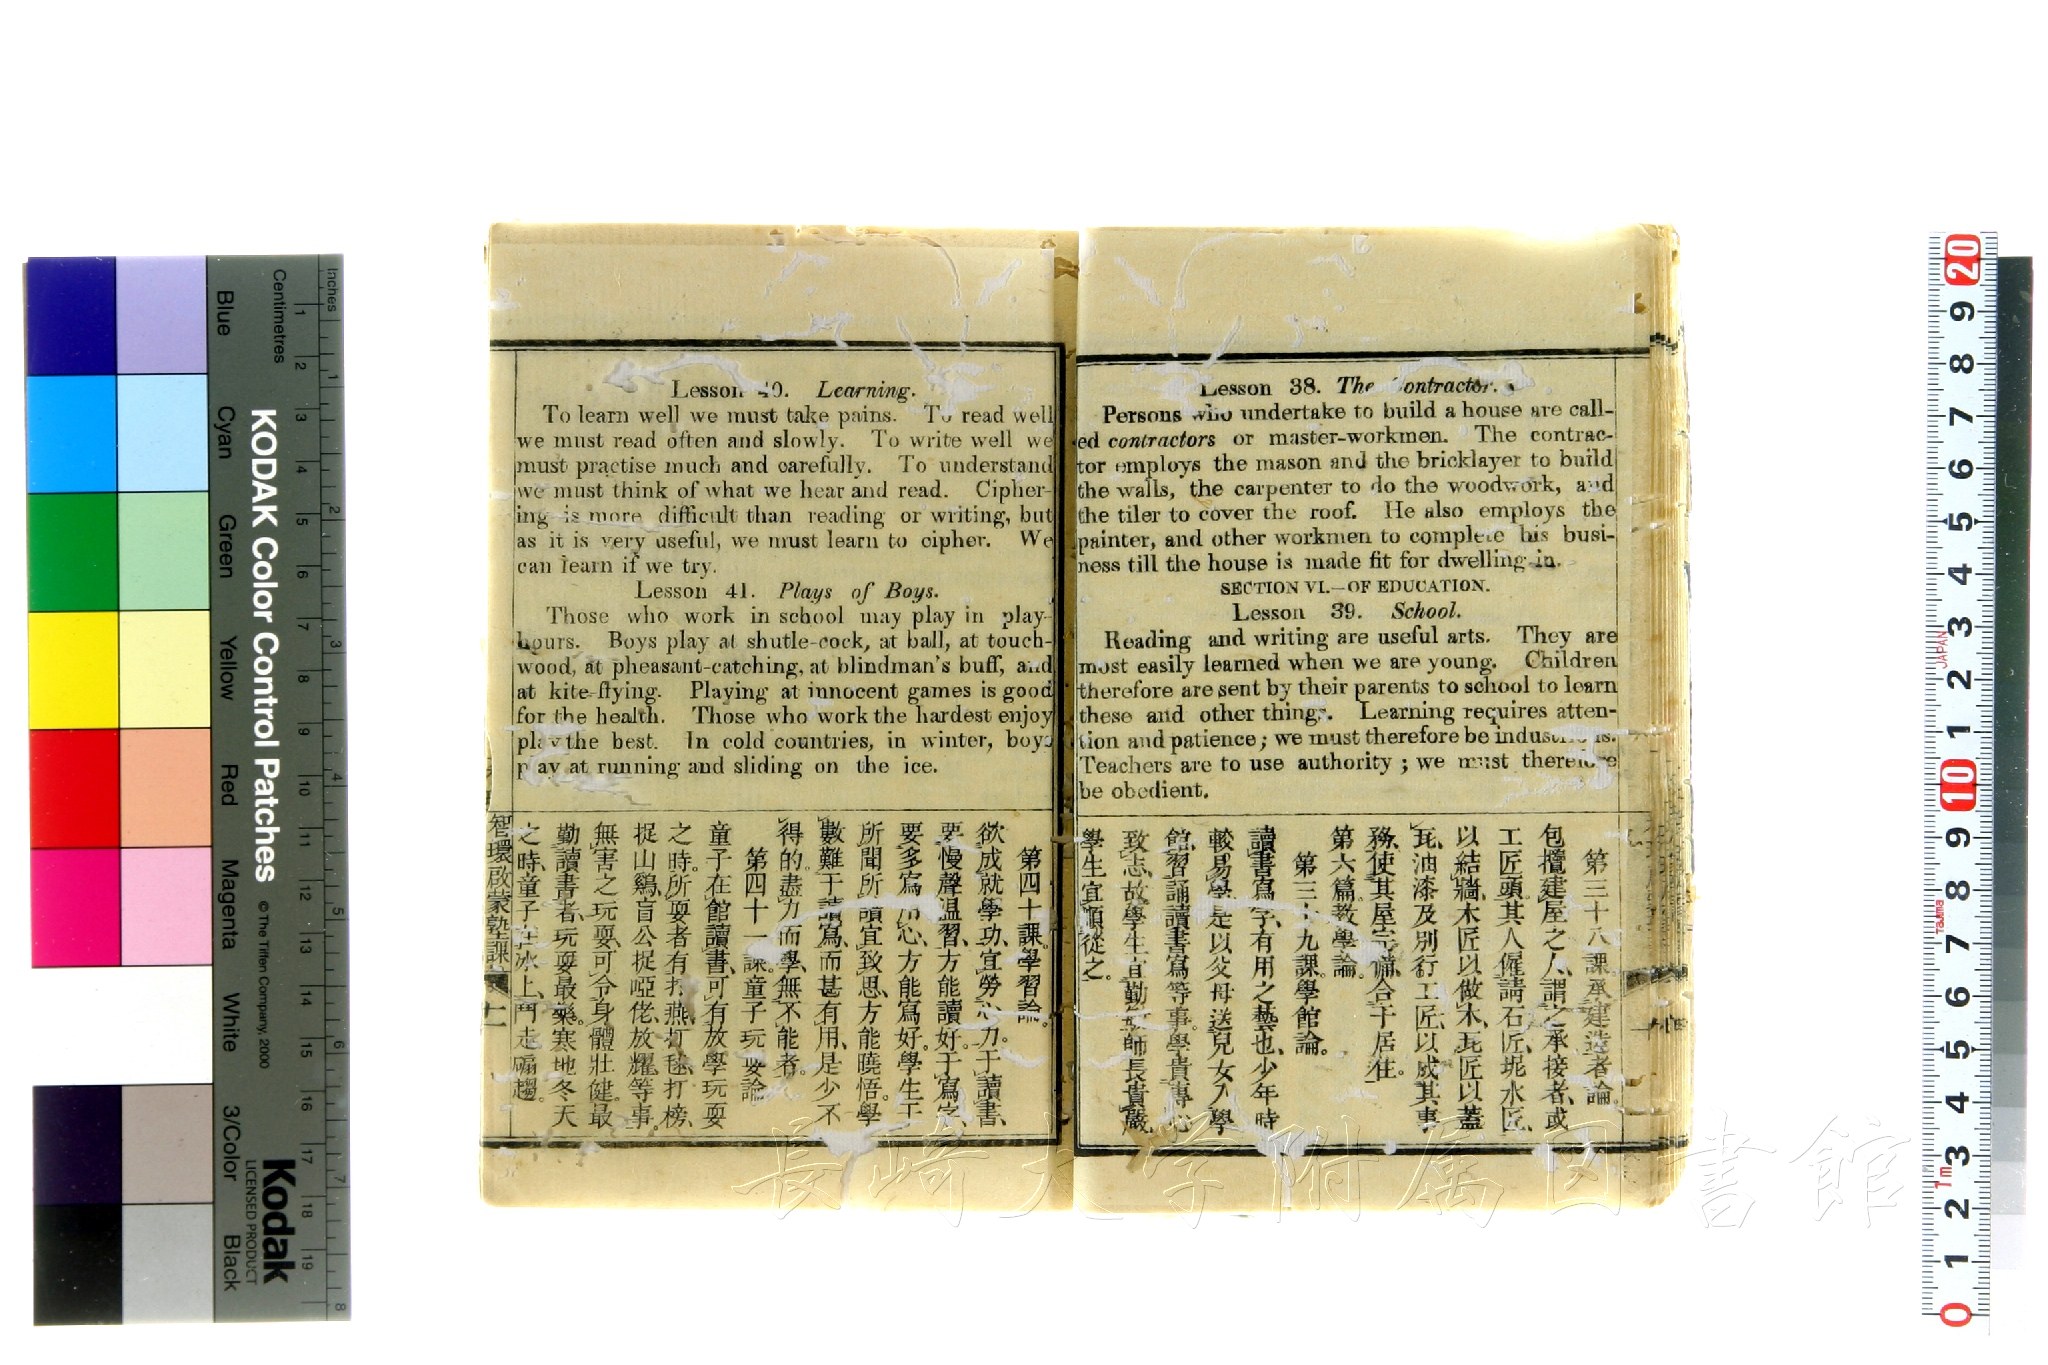 Lesson 38. The Contractor.
Persons who undertake to build a house are call-
ed contractors or master-workmen. The contrac-
tor employs the mason and the bricklayer to build
the walls, the carpenter to do the woodwork, and
the tiler to cover the roof. He also employs the
painter, and other workmen to complete his busi-
ness till the house is made fit for dwelling in.
SECTION VI.—OF EDUCATION.
Lesson 39. School.
Reading and writing are useful arts. They are
most easily learned when we are young. Children
therefore are sent by their parents to school to learn
these and other things. Learning requires atten-
tion and patience; we must therefore be industrious.
Teachers are to use authority; we must therefore
be obedient.
第三十八課。承建造者論。
包攬建屋之人、謂之承接者、或
工匠頭、其人僱請石匠、坭水匠、
以結牆、木匠以做木、瓦匠以蓋
瓦、油漆及別行工匠、以成其事
務、使其屋完備、合于居住。
第六篇。教學論。
第三十九課。學館論。
讀書寫字、有用之藝也、少年時
較易學、是以父母送兒女入學
館、習誦讀書寫等事。學貴專心
致志、故學生宜勤敏、師長貴嚴、
學生宜順從之。
Lesson 40. Learning.
To learn well we must take pains. To read well
we must read often and slowly. To write well we
must practise much and carefully. To understand
we must think of what we hear and read. Cipher-
ing is more difficult than reading or writing, but
as it is very useful, we must learn to cipher. We
can learn if we try.
Lesson 41. Plays of Boys.
Those who work in school may play in play-
hours. Boys play at shutle-cock, at ball, at touch-
wood, at pheasant-catching, at blindman's buff, and
at kite-flying. Playing at innocent games is good
for the health. Those who work the hardest enjoy
play the best. In cold countries, in winter, boys
play at running and sliding on the ice.
第四十課。學習論。
欲成就學功、宜勞心力。于讀書、
要慢聲溫習、方能讀好。于寫字、
要多寫用心、方能寫好。學生于
所聞所讀、宜致思、方能曉悟。學
數難于讀寫、而甚有用、是少不
得的。盡力而學、無不能者。
第四十一課。童子玩耍論
童子在館讀書、可有放學玩耍
之時。所耍者有打燕、打毬、打榜、
捉山鷄、盲公捉啞佬、放鷂、等事。
無害之玩耍、可令身體壯健。最
勤讀書者、玩耍最樂。寒地冬天
之時、童子在冰上、鬥走𨂃趨。
智環啟蒙塾課
十一
Inches
Centimetres
KODAK Color Control Patches
© The Tiffen Company, 2000
Kodak
LICENSED PRODUCT
Blue
Cyan
Green
Yellow
Red
Magenta
White
3/Color
Black
1 2 3 4 5 6 7 8 9 10 11 12 13 14 15 16 17 18 19
1 2 3 4 5 6 7 8
20 9 8 7 6 5 4 3 2 1 10 9 8 7 6 5 4 3 2 1 0
JAPAN
Tajima
1m
長崎大学附属図書館